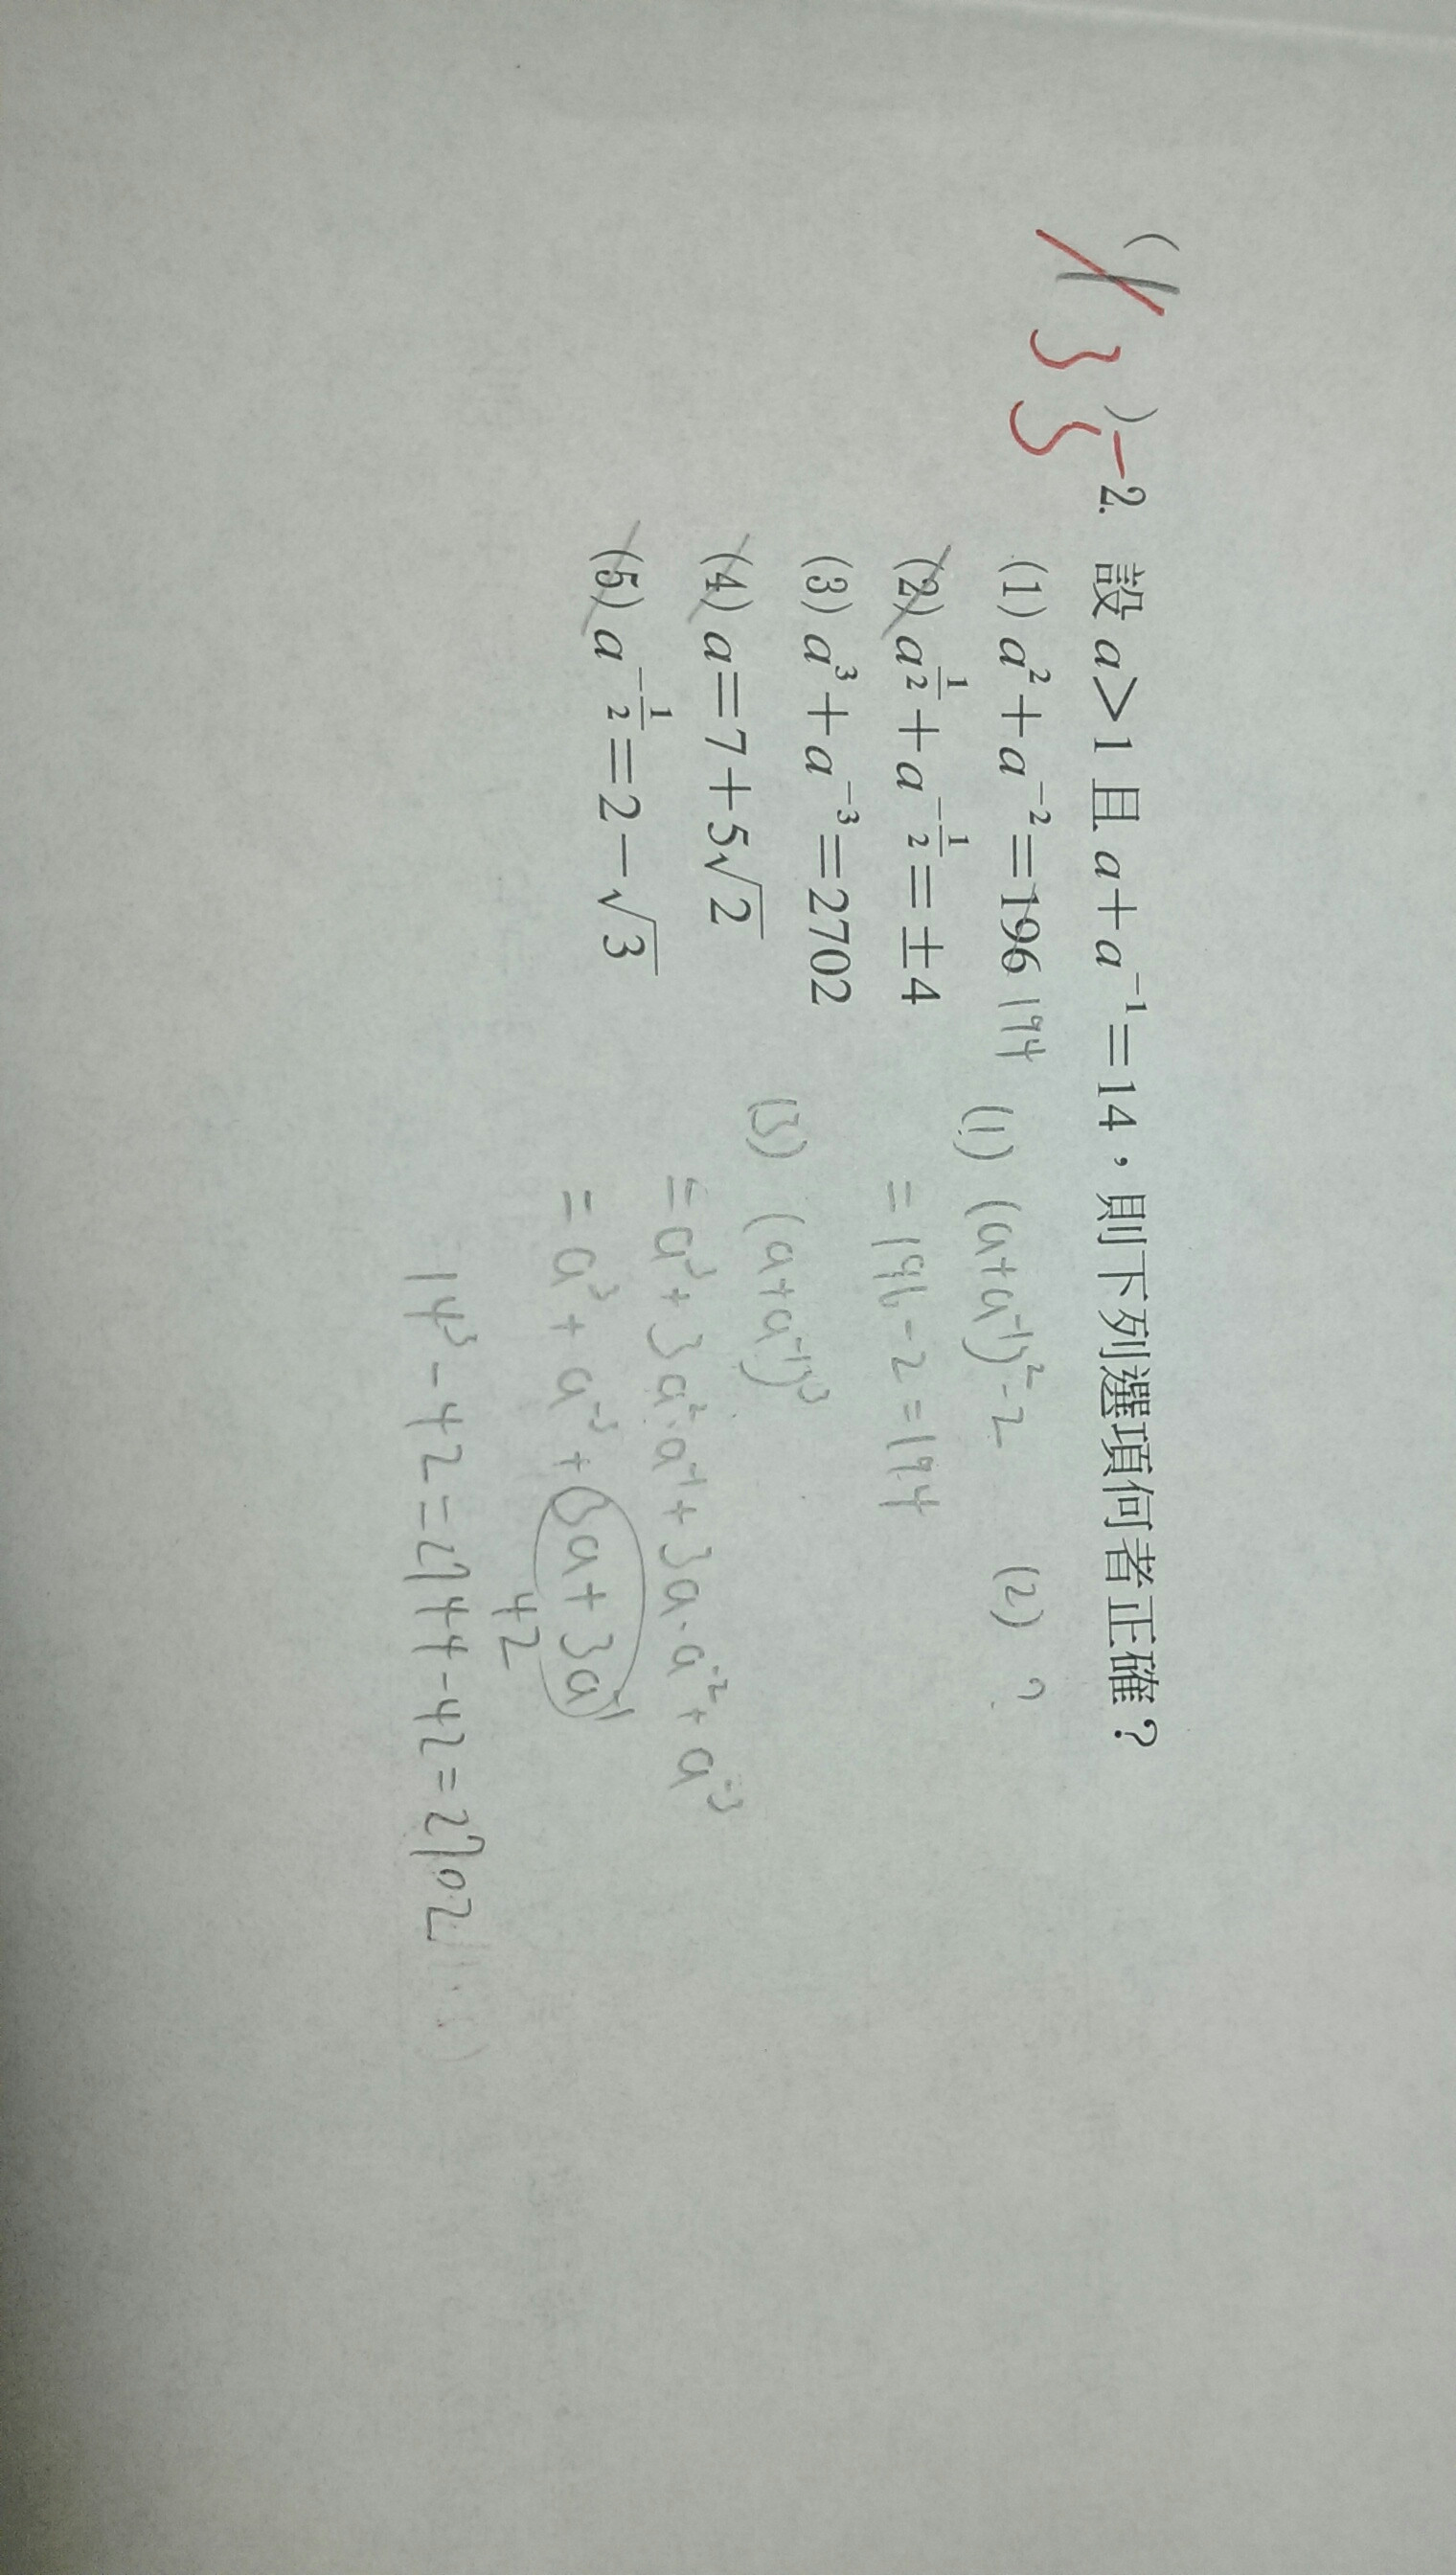 ( 1 3 5 ) 2. 設 a>1 且 a+a⁻¹=14，則下列選項何者正確？
(1) a²+a⁻²=196 194
(2) a^{1/2}+a^{-1/2}=±4
(3) a³+a⁻³=2702
(4) a=7+5√2
(5) a^{-1/2}=2-√3
(1) (a+a⁻¹)²-2
=196-2=194
(2) ?
(3) (a+a⁻¹)³
=a³+3a²·a⁻¹+3a·a⁻²+a⁻³
=a³+a⁻³+3a+3a⁻¹
42
14³-42=2744-42=2702